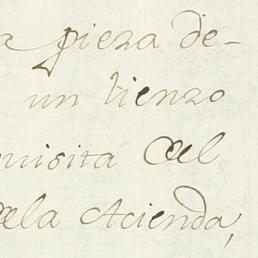 a pieza de-
un lienzo
uisita del
dela Acienda,